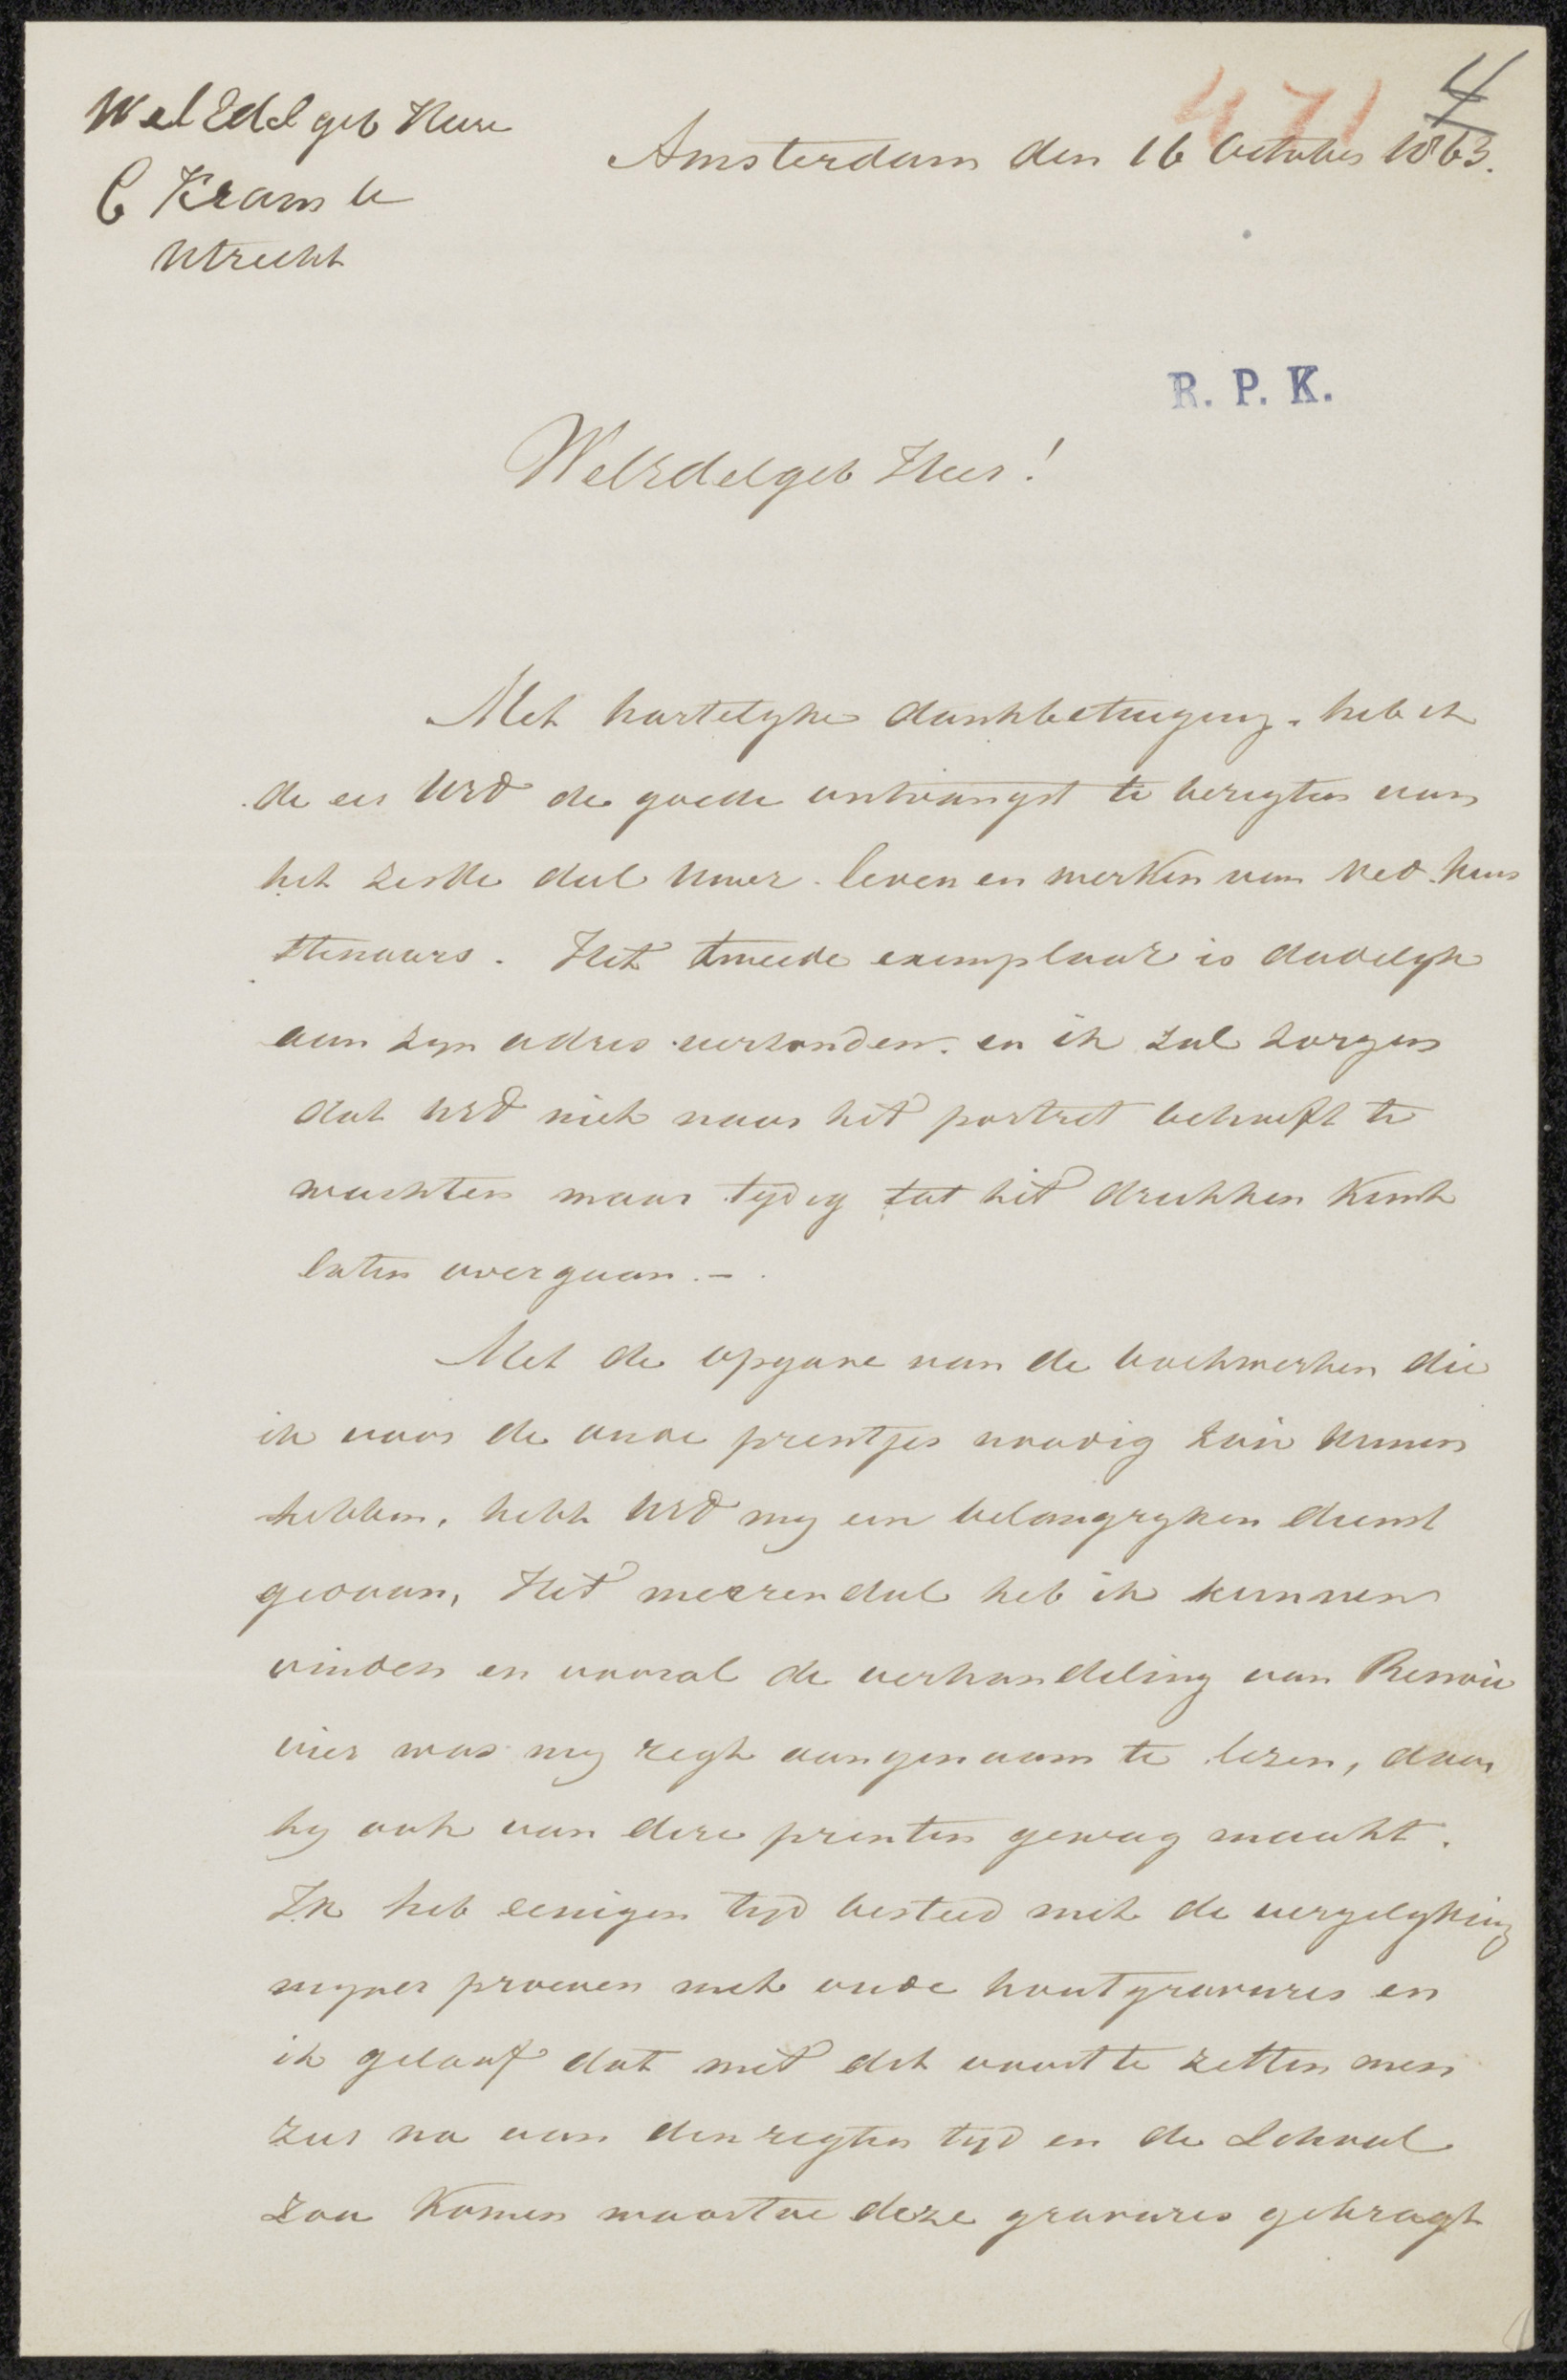 471 4
WelEdelgeb Heere
C Kramm te
Utrecht
Amsterdam den 16 October 1863.
R. P. K.
WelEdelgeb Heer!
Met hartelyke dankbetuiging. heb ik
de eer UEd de goede ontvangst te berigten van
het zesde deel Uwer leven en werken van Ned. kuns
ttenaars. Het tweede exemplaar is dadelyk
aan zyn adres verzonden. en ik zal zorgen
dat UEd niet naar het portret behoeft te
wachten maar tydig tot het drukken kunt
laten overgaan. -
Met de opgave van de boekwerken die
ik voor de oude prentjes noodig zou kunnen
hebben, hebt UEd my een belangryken dienst
gedaan, Het meerendeel heb ik kunnen
vinden en vooral de verhandeling van Renou
vier was my regt aangenaam te lezen, daar
hy ook van deze prenten gewag maakt.
Ik heb eenigen tyd besteed met de vergelyking
myner proeven met oude houtgravures en
ik geloof dat met dit voort te zetten men
zeer na aan den regten tyd en de School
zou komen waartoe deze gravures gebragt